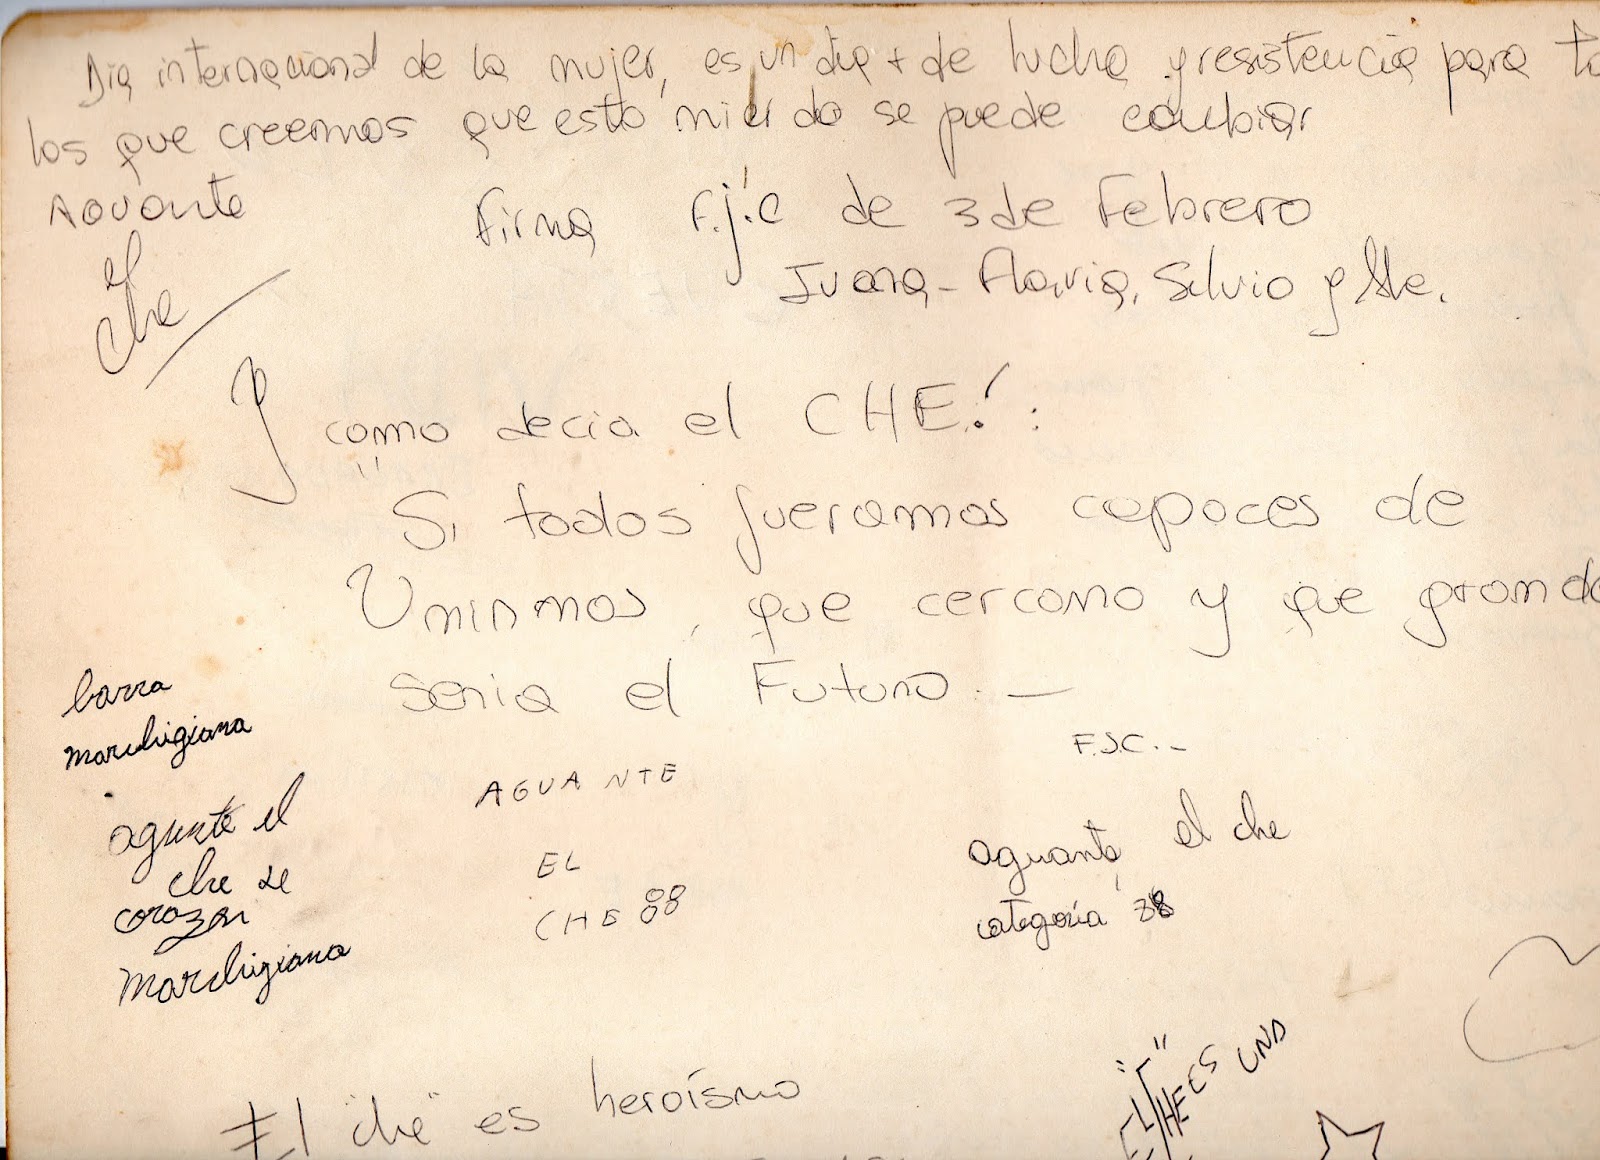 Dia internacional de la mujer, es un dia + de lucha y resistencia para to
los que creemos que esta mierda se puede cambiar
Aguante
el
che
Firma F.J.C de 3 de Febrero
Juana - Flavia, Silvio y Ale.
Y como decia el CHE! :
"Si todos fueramos capaces de
Uninmos, que cercano y que grande
seria el Futuro. —
F.J.C. -
barra
marchigiana
aguante el
che de
corazon
Marchigiana
AGUANTE
EL
CHE 88
aguante el che
categoria 38
El "che" es heroísmo
"EL CHE ES UNA